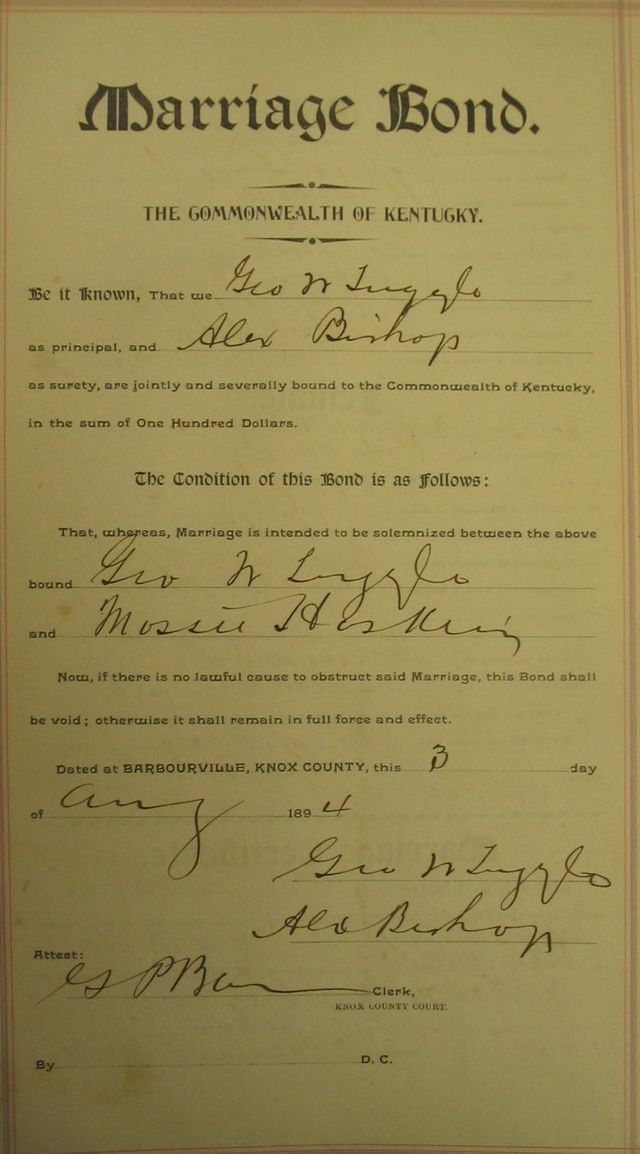 Marriage Bond.
THE COMMONWEALTH OF KENTUCKY.
Be it Known, That we Geo W
as principal, and Alex Bishop
as surety, are jointly and severally bound to the Commonwealth of Kentucky,
in the sum of One Hundred Dollars.
The Condition of this Bond is as Follows:
That, whereas, Marriage is intended to be solemnized between the above
bound Geo W
and Mossie Hoskins
Now, if there is no lawful cause to obstruct said Marriage, this Bond shall
be void; otherwise it shall remain in full force and effect.
Dated at BARBOURVILLE, KNOX COUNTY, this 3 day
of Aug 1894
Geo W
Alex Bishop
Attest:
Clerk,
KNOX COUNTY COURT.
By D. C.